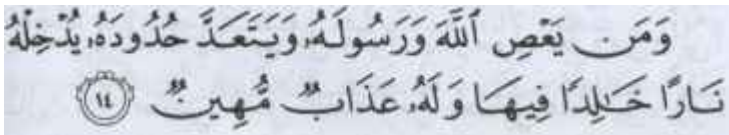 وَمَن يَعْصِ ٱللَّهَ وَرَسُولَهُۥ وَيَتَعَدَّ حُدُودَهُۥ يُدْخِلْهُ
نَارًا خَٰلِدًا فِيهَا وَلَهُۥ عَذَابٌ مُّهِينٌ ١٤